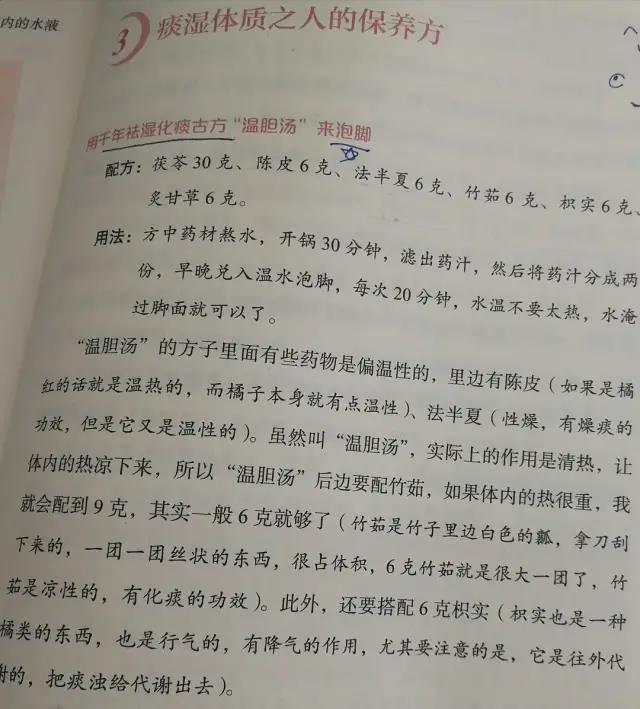 内的水液
3 痰湿体质之人的保养方
用千年祛湿化痰古方“温胆汤”来泡脚
配方：茯苓 30 克、陈皮 6 克、法半夏 6 克、竹茹 6 克、枳实 6 克、
炙甘草 6 克。
用法：方中药材熬水，开锅 30 分钟，滤出药汁，然后将药汁分成两
份，早晚兑入温水泡脚，每次 20 分钟，水温不要太热，水淹
过脚面就可以了。
“温胆汤”的方子里面有些药物是偏温性的，里边有陈皮（如果是橘
红的话就是温热的，而橘子本身就有点温性）、法半夏（性燥，有燥痰的
功效，但是它又是温性的）。虽然叫“温胆汤”，实际上的作用是清热，让
体内的热凉下来，所以“温胆汤”后边要配竹茹，如果体内的热很重，我
就会配到 9 克，其实一般 6 克就够了（竹茹是竹子里边白色的瓤，拿刀刮
下来的，一团一团丝状的东西，很占体积，6 克竹茹就是很大一团了，竹
茹是凉性的，有化痰的功效）。此外，还要搭配 6 克枳实（枳实也是一种
橘类的东西，也是行气的，有降气的作用，尤其要注意的是，它是往外代
谢的，把痰浊给代谢出去）。